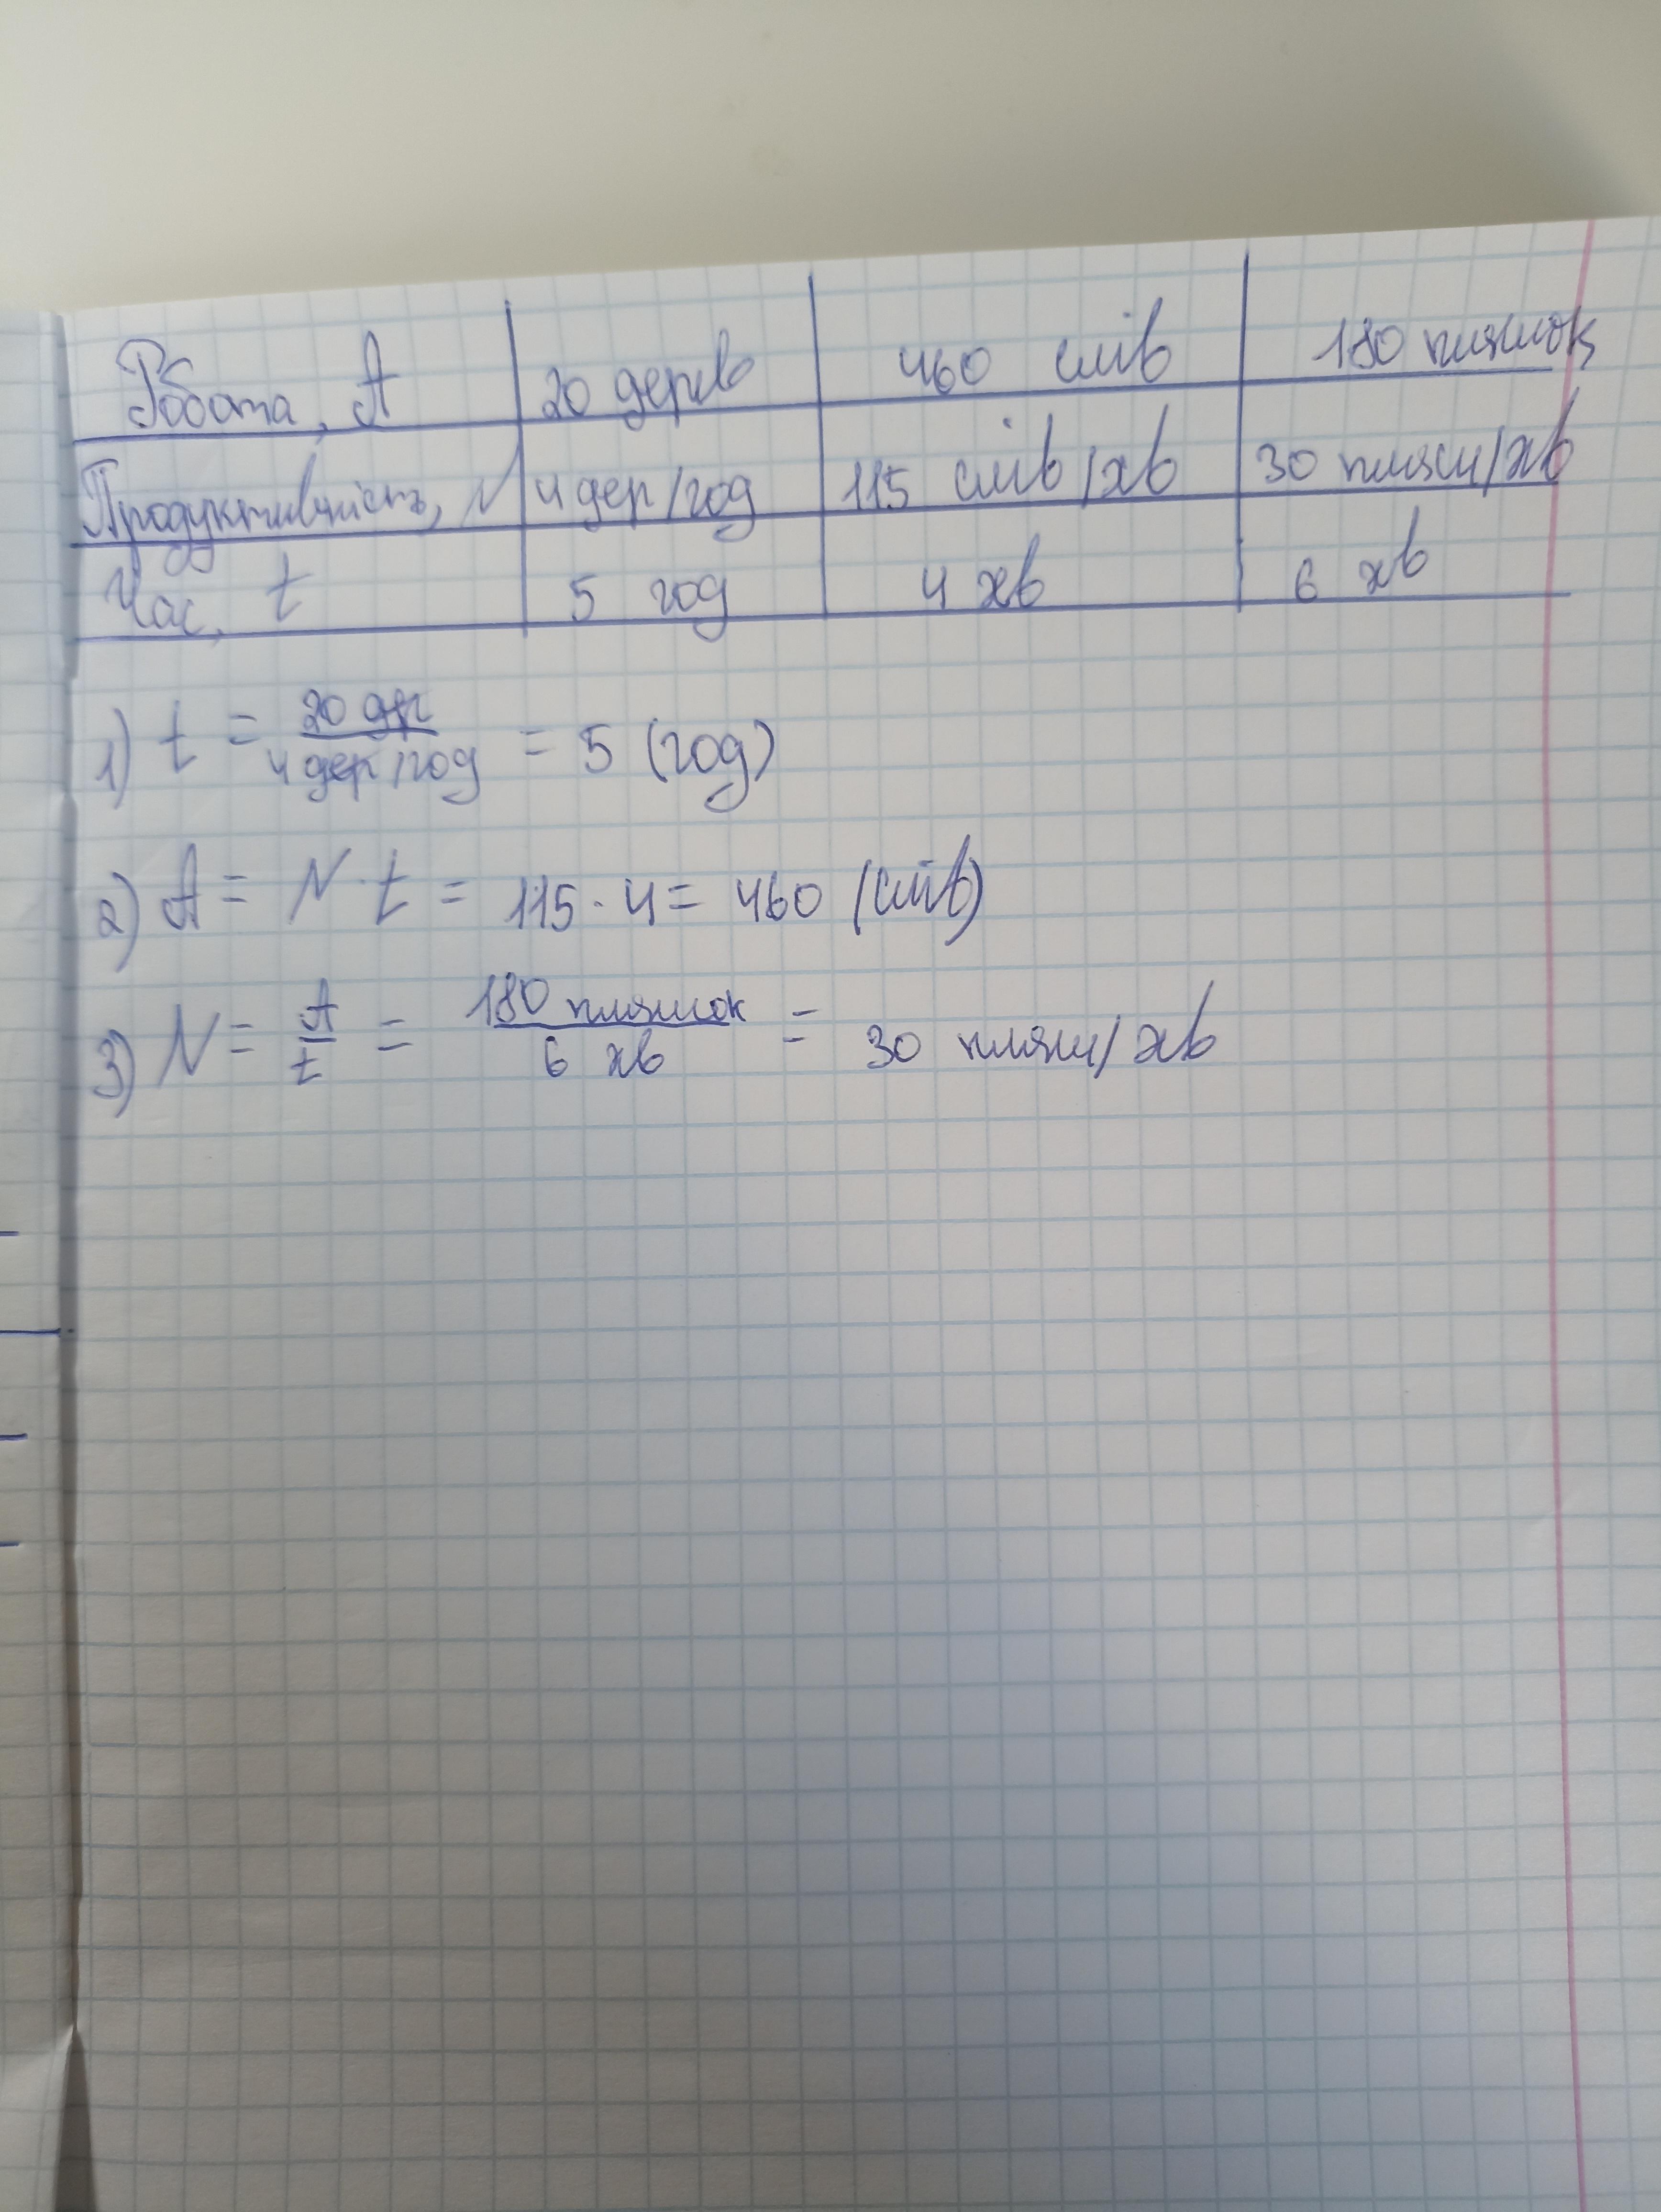 Робота, А 20 дерев 460 слів 180 пляшок
Продуктивність, N 4 дер/год 115 слів/хв 30 пляш/хв
Час, t 5 год 4 хв 6 хв
1) t = 20 дер / 4 дер/год = 5 (год)
2) A = N · t = 115 · 4 = 460 (слів)
3) N = A / t = 180 пляшок / 6 хв = 30 пляш/хв